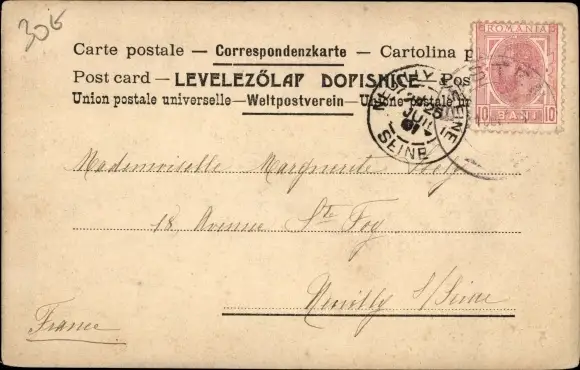 306
ROMANIA
Carte postale — Correspondenzkarte — Cartolina p
Post card — LEVELEZŐLAP DOPISNICE — Pos
Union postale universelle — Weltpostverein — Unione postale un
10 BANI 10
NEUILLY S SEINE
25
JUIL
01
SEINE
Mademoiselle Marguerite
18 Avenue Ste Foy
Neuilly s/Seine
France